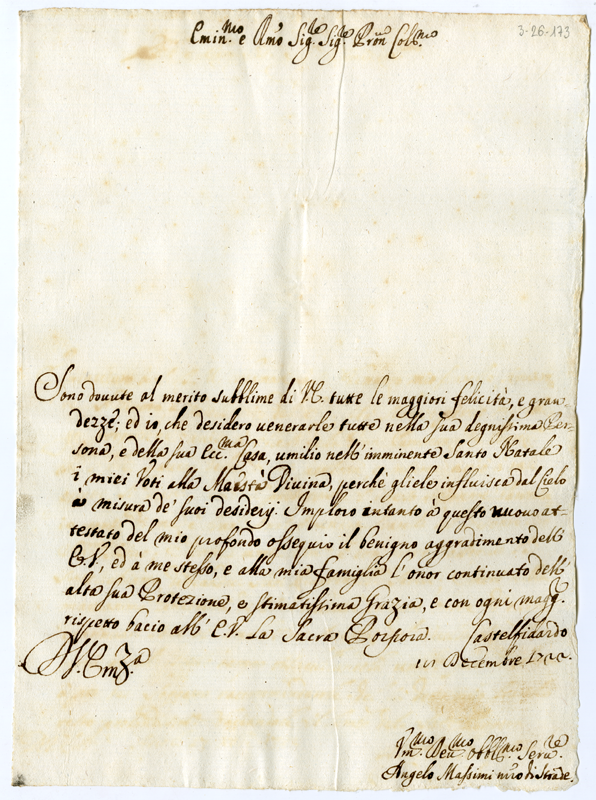 3-26-173
Emin.mo e Rmo Sig.re Sig.re Pron Col.mo
Sono douute al merito subblime di VE. tutte le maggiori felicità, e gran
dezze; ed io, che desidero uenerarle tutte nella sua degnissima Per-
sona, e della sua Ecc.ma Casa, umilio nell' imminente Santo Natale
i miei Voti alla Maestà Diuina, perche gliele influisca dal Cielo
à misura de' suoi desiderij. Imploro intanto à questo nuouo at=
testato del mio profondo ossequio il benigno aggradimento dell'
E.V., ed à me stesso, e alla mia famiglia l'onor continuato dell'
alta sua Protezione, e stimatissima Grazia, e con ogni magg.re
rispetto bacio all' E.V. La Sacra Porpora. Castelfidardo
Decembre 1722.
V. Emza
Vm.mo Deu.mo Obbl.mo Seru.re
Angelo Massimi di Strade.